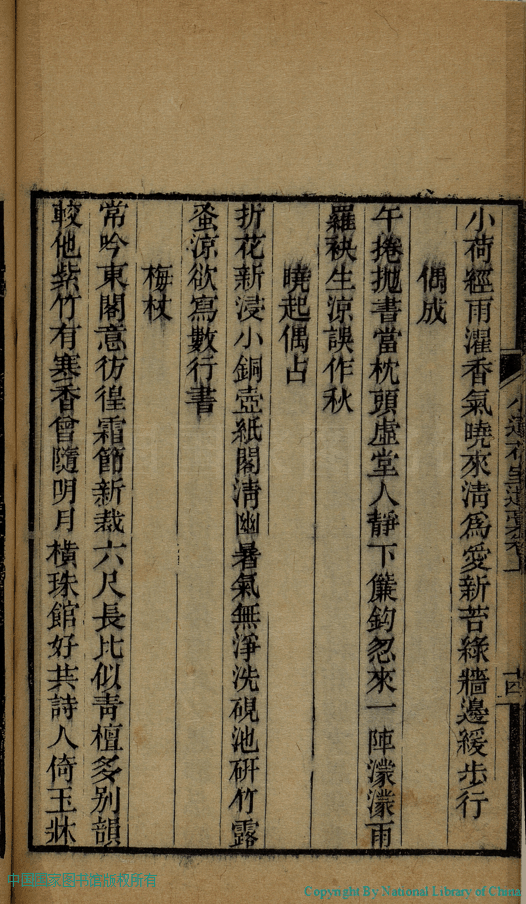 小荷經雨濯香氣曉來淸爲愛新苔綠牆邊緩步行
偶成
午捲拋書當枕頭虛堂人靜下簾鈎忽來一陣濛濛雨
羅袂生涼誤作秋
曉起偶占
折花新浸小銅壺紙閣淸幽暑氣無淨洗硯池硏竹露
蚤涼欲寫數行書
梅杖
常吟東閣意彷徨霜節新裁六尺長比似靑檀多別韻
較他紫竹有寒香曾隨明月橫珠館好共詩人倚玉牀
十四
中国国家图书馆版权所有
Copyright By National Library of China